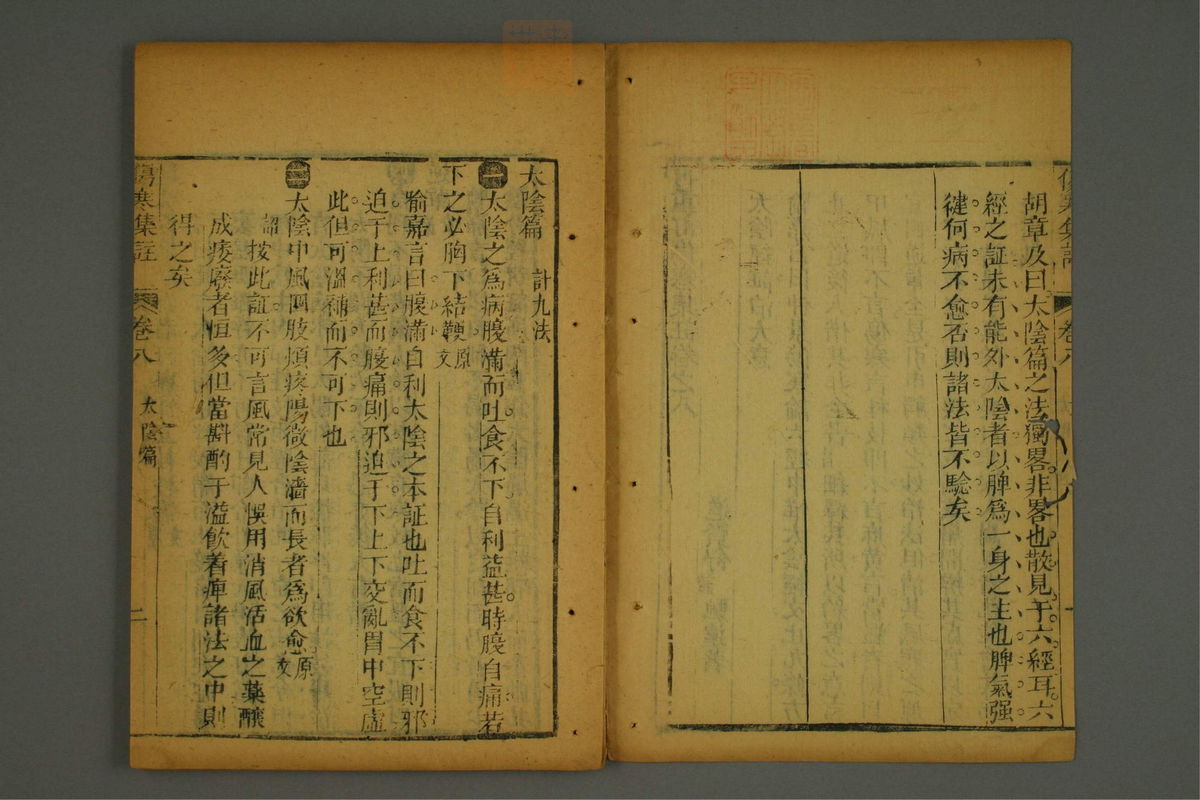 胡章及曰太陰篇之法獨畧非畧也散見于六經耳六
經之証未有能外太陰者以脾爲一身之主也脾氣强
徤何病不愈否則諸法皆不驗矣
太陰篇 計九法
一 太陰之爲病腹滿而吐食不下自利益甚時腹自痛若
下之必胸下結鞕原文
喻嘉言曰腹滿自利太陰之本証也吐而食不下則邪
迫于上利甚而腹痛則邪迫于下上下交亂胃中空虛
此但可溫補而不可下也
二 太陰中風四肢煩疼陽微陰濇而長者爲欲愈原文
按此証不可言風常見人悞用消風活血之藥釀
成痿廢者恒多但當斟酌于溢飲着痺諸法之中則
得之矣
傷寒集註 卷八 太陰篇 二